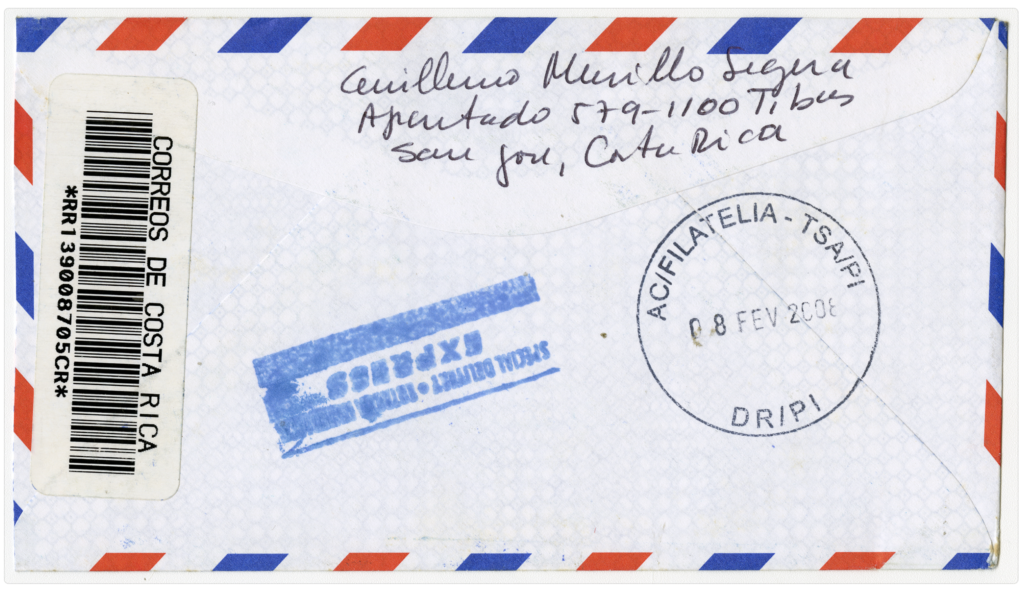 Guillermo Murillo Segura
Apartado 579-1100 Tibas
San Jose, Costa Rica
CORREOS DE COSTA RICA
*RR139008705CR*
AC/FILATELIA - TSA/PI
08 FEV 2008
DR/PI
SPECIAL DELIVERY •
EXPRESS